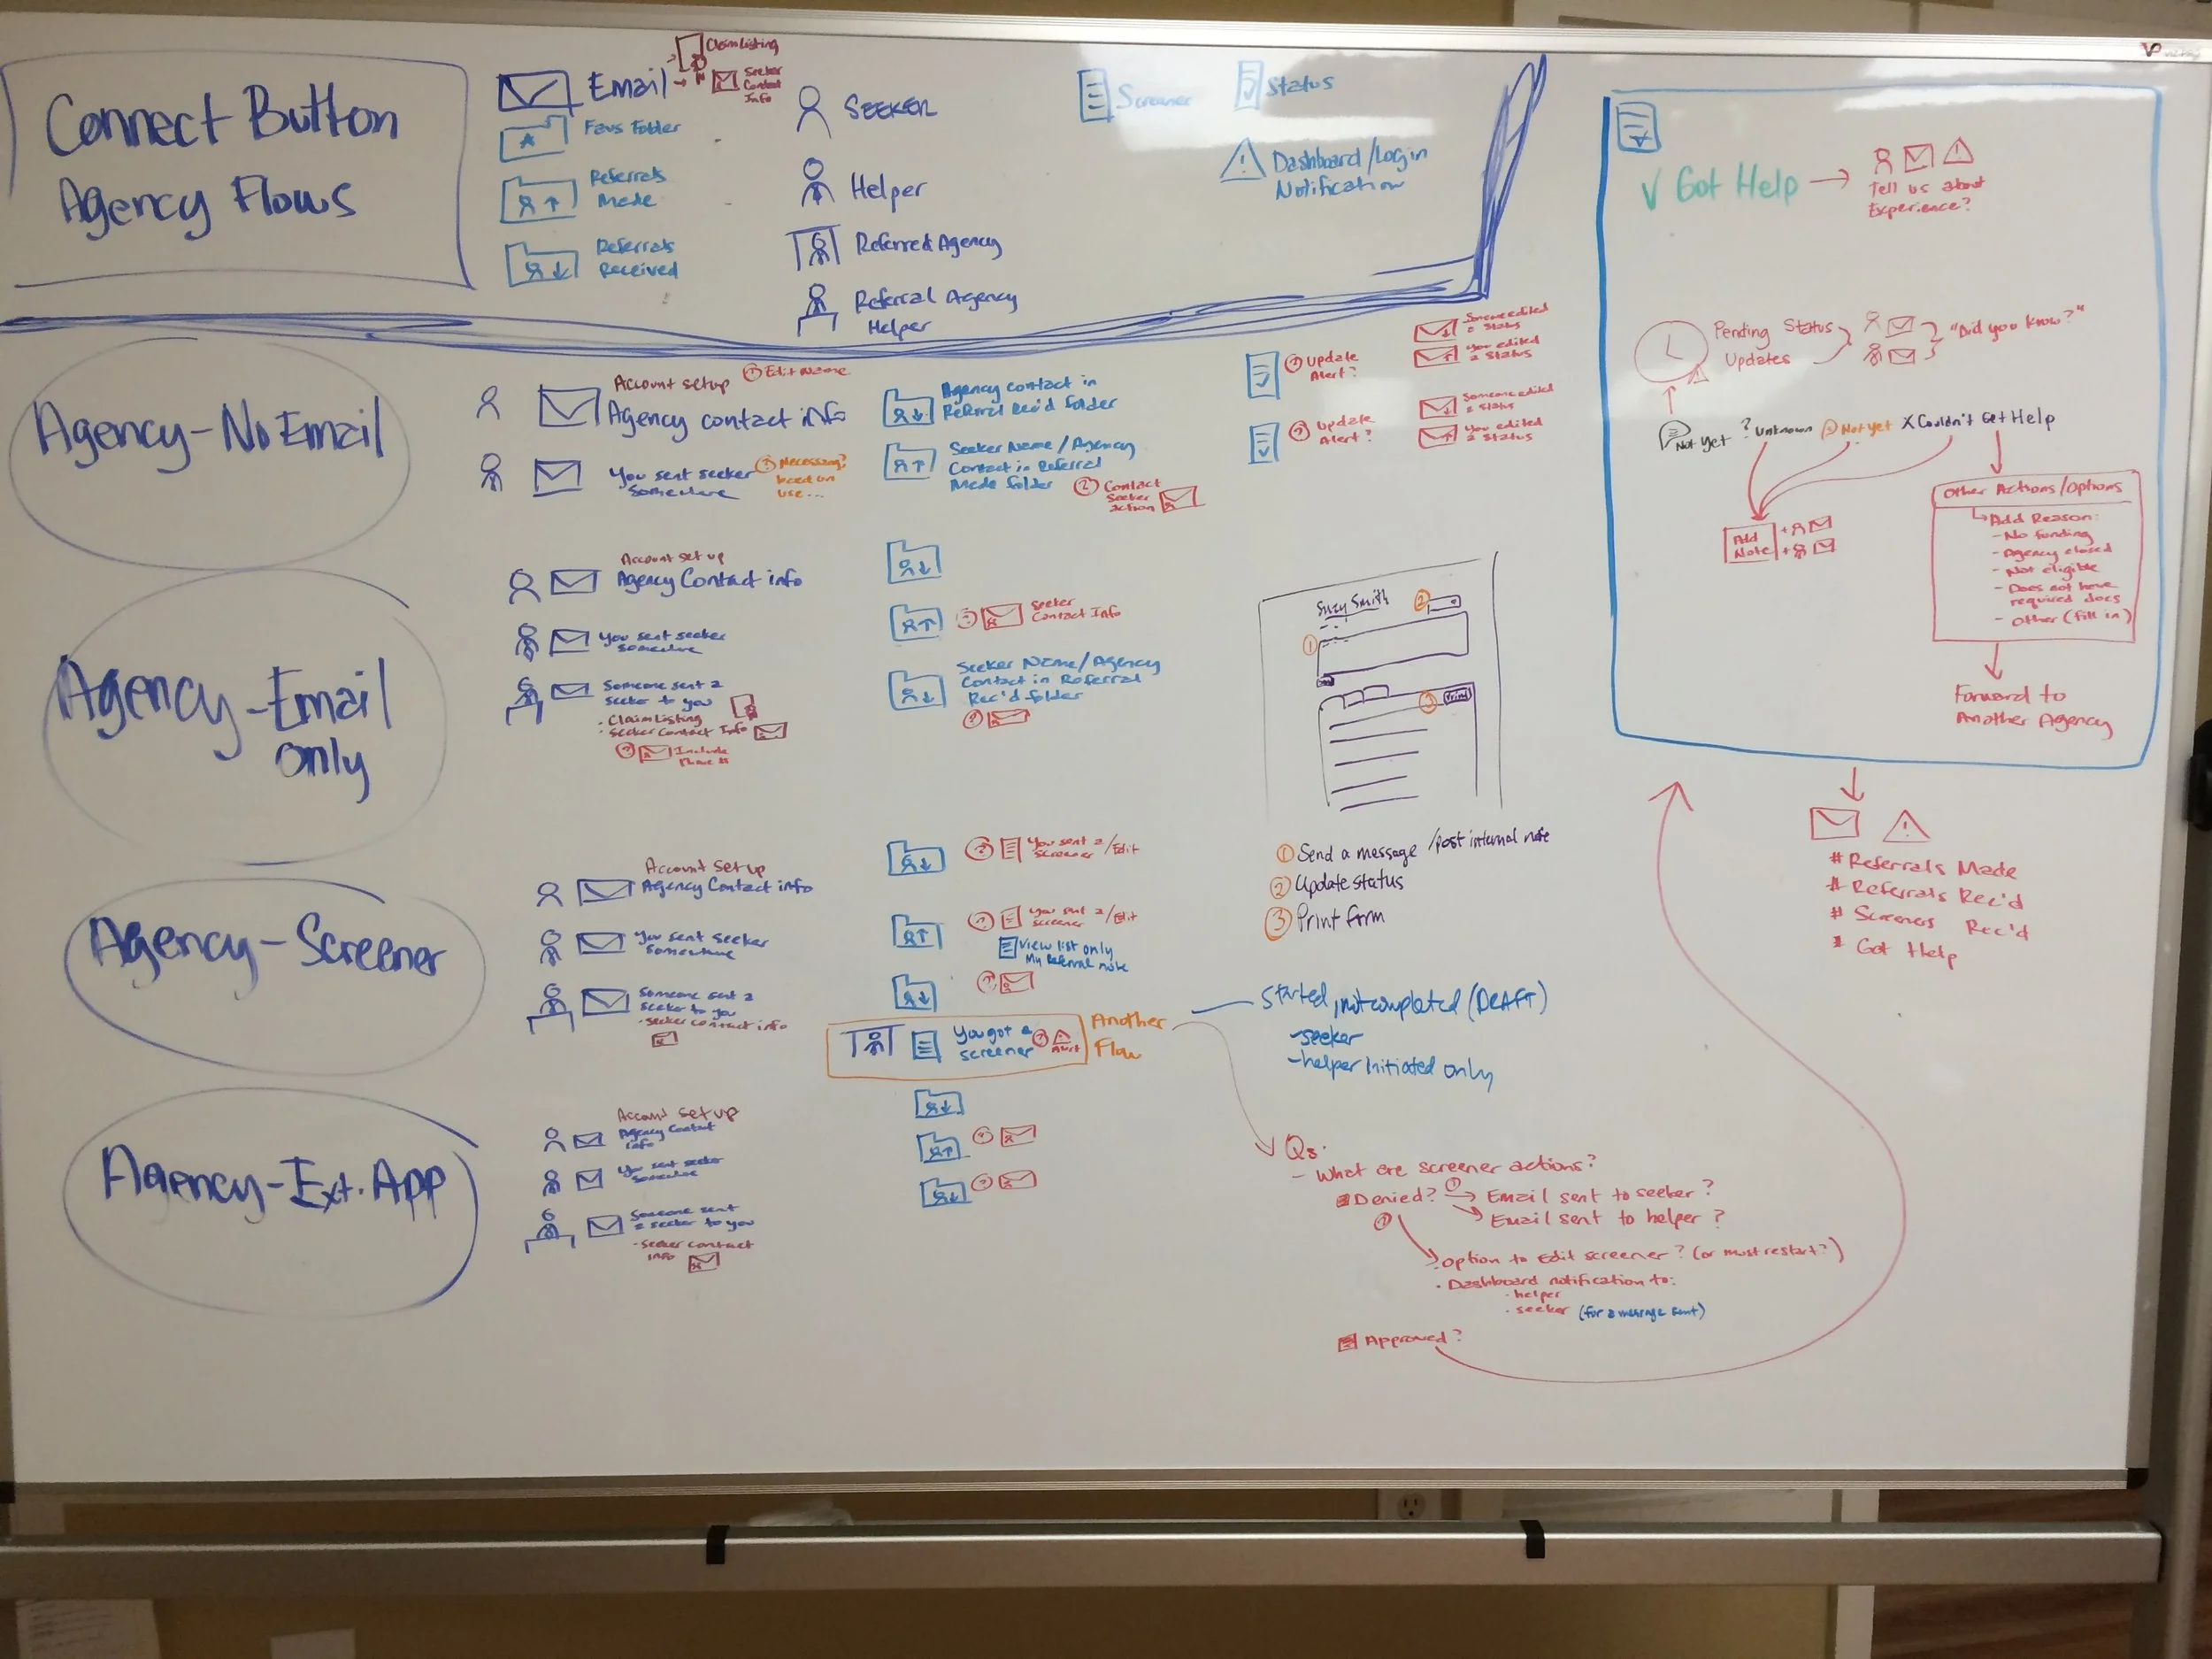 Connect Button
Agency Flows
Email
Claim Listing
Seeker
Contact
Info
Favs Folder
Referrals
Made
Referrals
Received
SEEKER
Helper
Referred Agency
Referral Agency
Helper
Screener
Status
Dashboard/Login
Notification
Agency-No Email
Account setup
① Edit Name
Agency contact info
You sent seeker
somewhere
Necessary?
based on
use...
Agency contact in
Referral Rec'd folder
Seeker Name/Agency
Contact in Referral
Made folder
② Contact
Seeker
action
Update
Alert?
Update
Alert?
Someone edited
a status
You edited
a status
Someone edited
a status
You edited
a status
Agency-Email
only
Account set up
Agency Contact info
You sent seeker
somewhere
Someone sent a
seeker to you
- Claim Listing
- Seeker Contact Info
Include
Phone #
Seeker
Contact Info
Seeker Name/Agency
Contact in Referral
Rec'd folder
Suzy Smith
②
①
③ Print
① Send a message /post internal note
② Update status
③ Print form
Agency-Screener
Account set up
Agency Contact info
You sent seeker
somewhere
Someone sent a
seeker to you
- seeker contact info
You sent a/Edit
screener
screener
View list only
My Referral note
You got a
screener
Alert
Another
Flow
Started, not completed (DRAFT)
-seeker
-helper initiated only
Agency-Ext. App
Account set up
Agency Contact
info
You sent seeker
somewhere
Someone sent
a seeker to you
- seeker contact
info
Qs:
- What are screener actions?
Denied? → Email sent to seeker?
Email sent to helper?
Option to Edit screener? (or must restart?)
· Dashboard notification to:
· helper
· seeker (for a message sent)
Approved?
√ Got Help →
Tell us about
Experience?
Pending Status
Updates
"Did you know?"
Not yet
? Unknown
Not yet
X Couldn't Get Help
Add
Note
Other Actions/Options
Add Reason:
- No funding
- Agency closed
- Not eligible
- Does not have
required docs
- Other (fill in)
Forward to
Another Agency
# Referrals Made
# Referrals Rec'd
# Screeners Rec'd
# Got Help